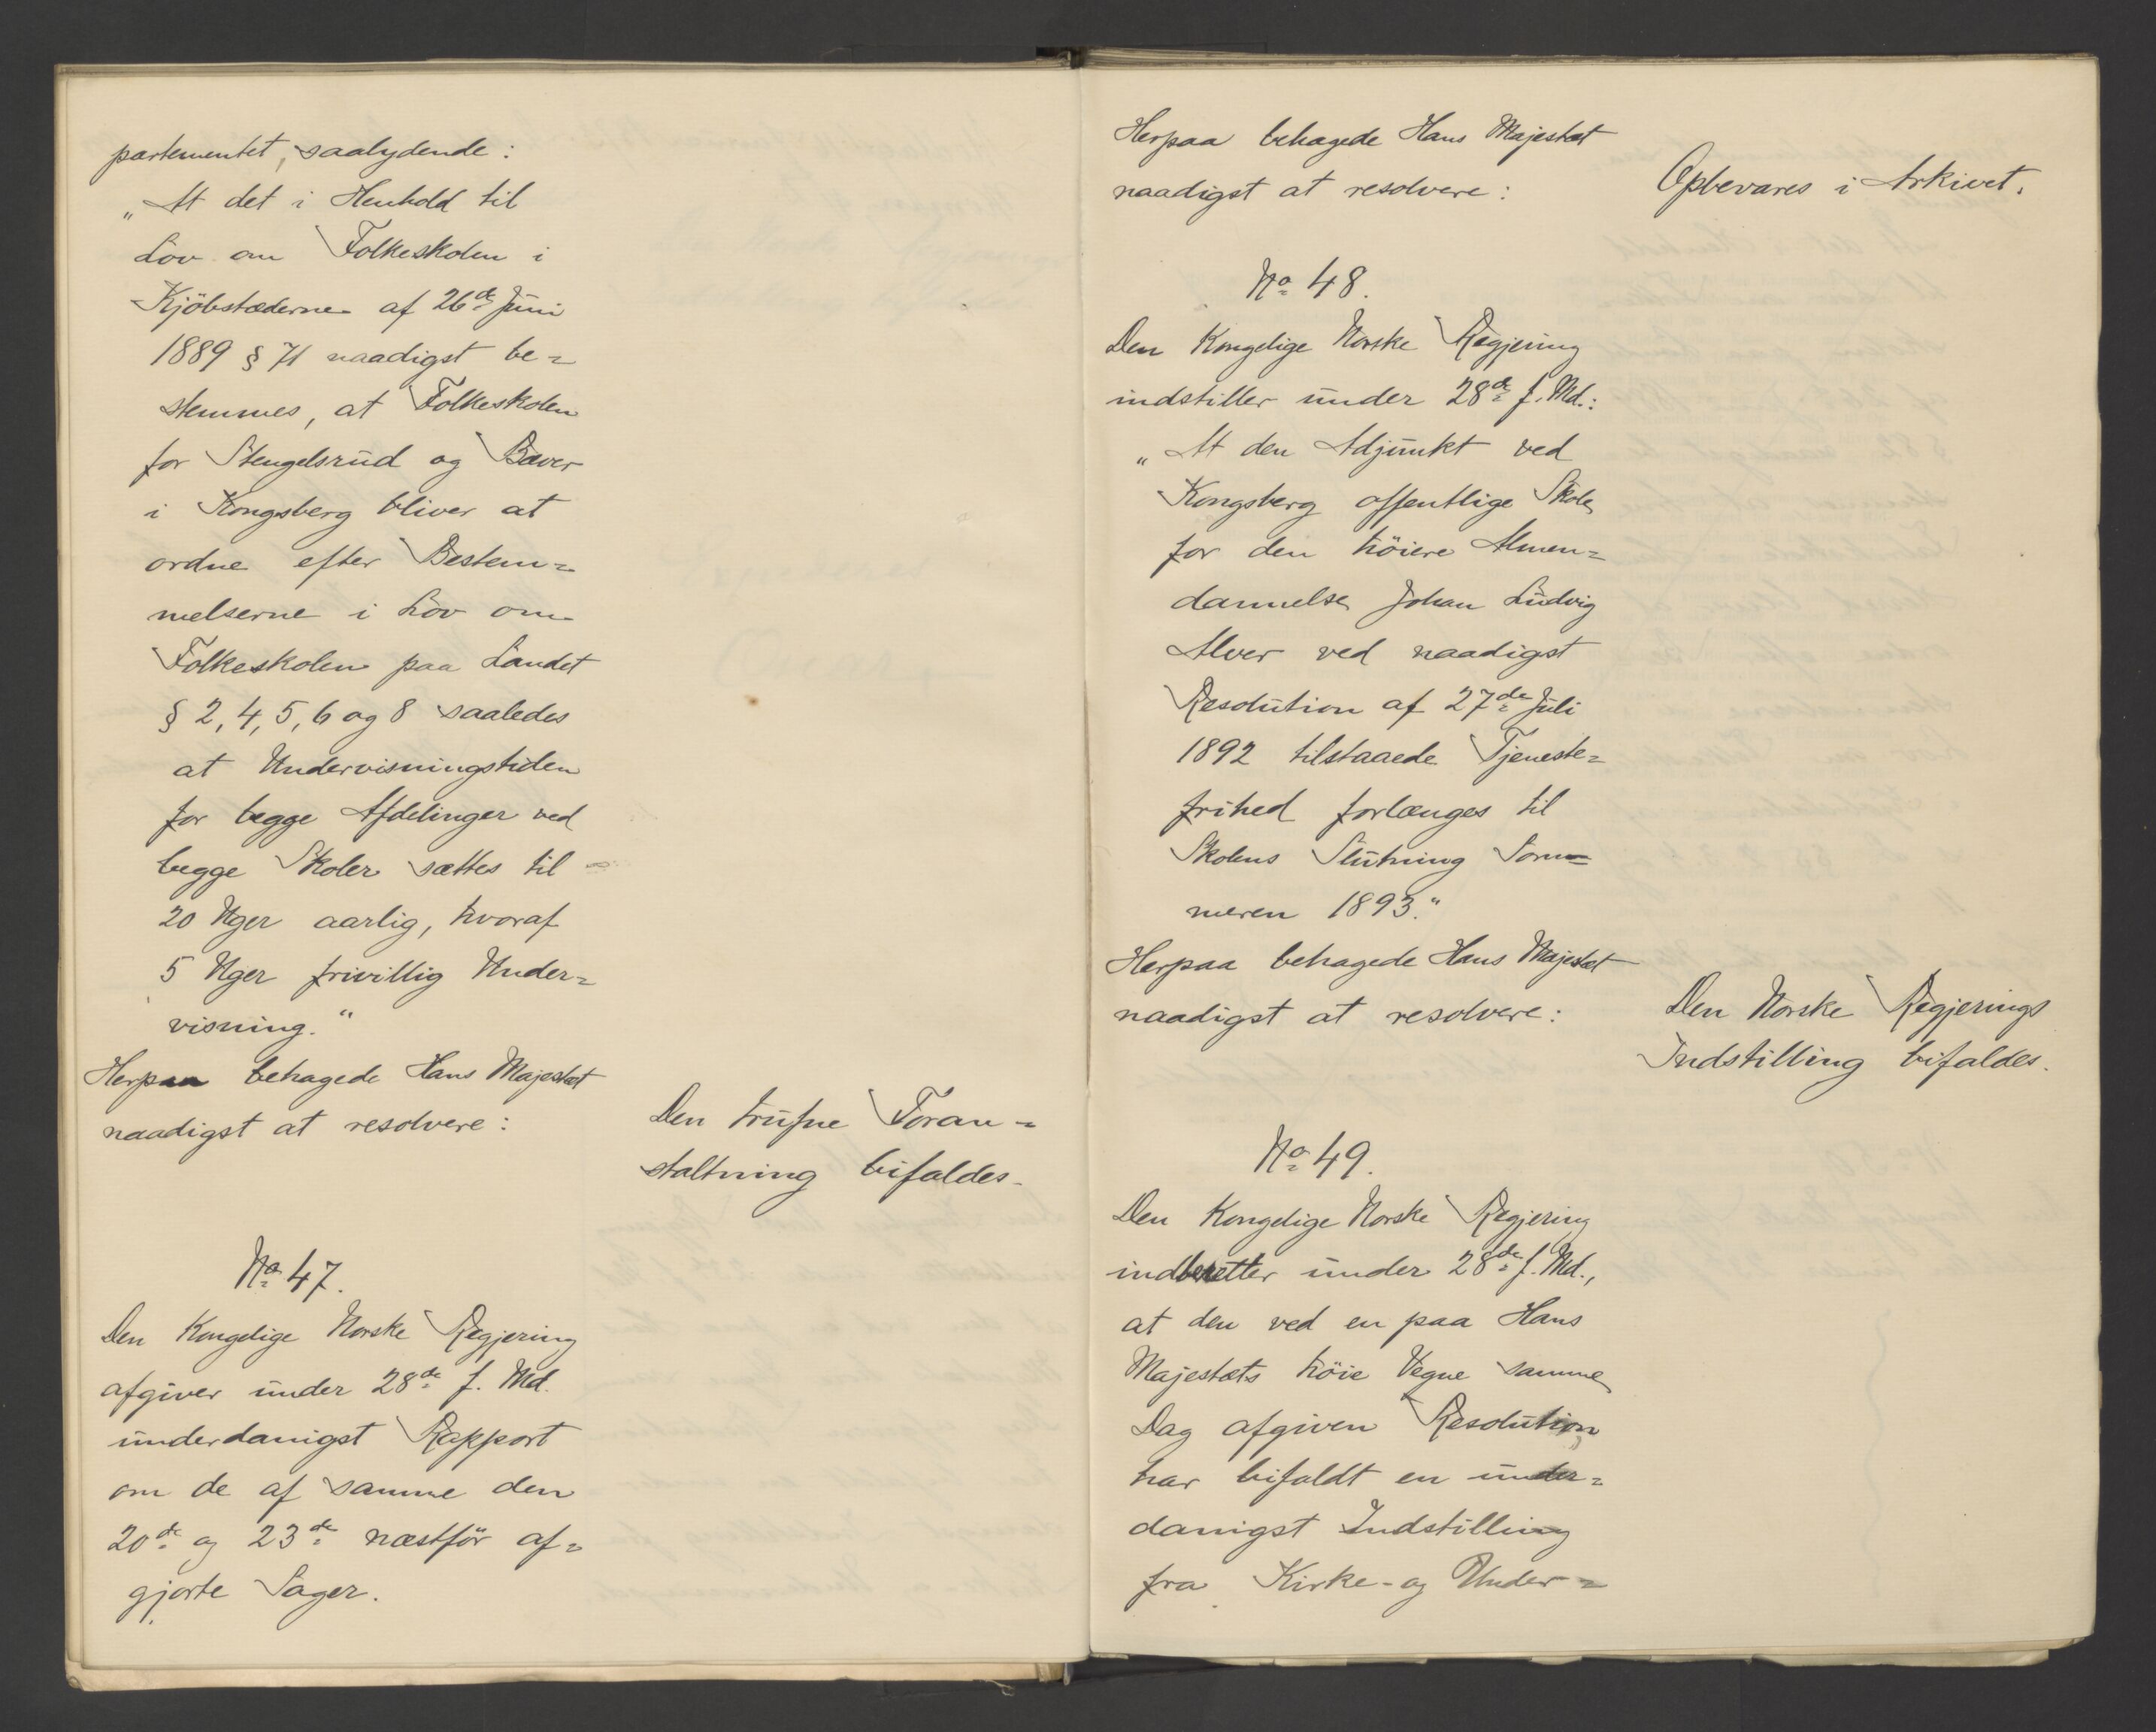 partementet, saalydende:
„At det i Henhold til
Lov om Folkeskolen i
Kjöbstæderne af 26de Juni
1889 § 71 naadigst be=
stemmes, at Folkeskolen
for Stengelsrud og Bæver
i Kongsberg bliver at
ordne efter Bestem=
melserne i Lov om
Folkeskolen paa Landet
§ 2, 4, 5, 6 og 8 saaledes
at Undervisningstiden
for begge Afdelinger ved
begge Skoler sættes til
20 Uger aarlig, hvoraf
5 Uger frivillig Under=
visning."
Herpaa behagede Hans Majestæt
naadigst at resolvere:
Den trufne Foran=
staltning bifaldes.
No 47.
Den Kongelige Norske Regjering
afgiver under 28de f. Md.
underdanigst Rapport
om de af samme den
20de og 23de næstför af=
gjorte Sager.
Herpaa behagede Hans Majestæt
naadigst at resolvere:
Opbevares i Arkivet.
No 48.
Den Kongelige Norske Regjering
indstiller under 28de f. Md.:
„At den Adjunkt ved
Kongsberg offentlige Skole
for den höiere Almen=
dannelse Johan Ludvig
Alver ved naadigst
Resolution af 27de Juli
1892 tilstaaede Tjeneste=
frihed forlænges til
Skolens Slutning Som=
meren 1893."
Herpaa behagede Hans Majestæt
naadigst at resolvere:
Den Norske Regjerings
Indstilling bifaldes.
No 49.
Den Kongelige Norske Regjering
indberetter under 28de f. Md.,
at den ved en paa Hans
Majestæts höie Vegne samme
Dag afgiven Resolution
har bifaldt en under=
danigst Indstilling
fra Kirke- og Under=